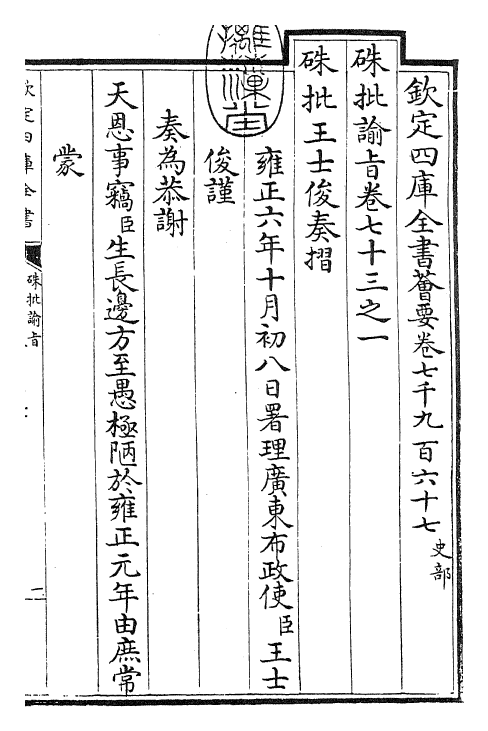 欽定四庫全書薈要卷七千九百六十七 史部
硃批諭旨卷七十三之一
硃批王士俊奏摺
雍正六年十月初八日署理廣東布政使臣王士
俊謹
奏為恭謝
天恩事竊臣生長邊方至愚極陋於雍正元年由庶常
蒙
欽定四庫全書
硃批諭旨